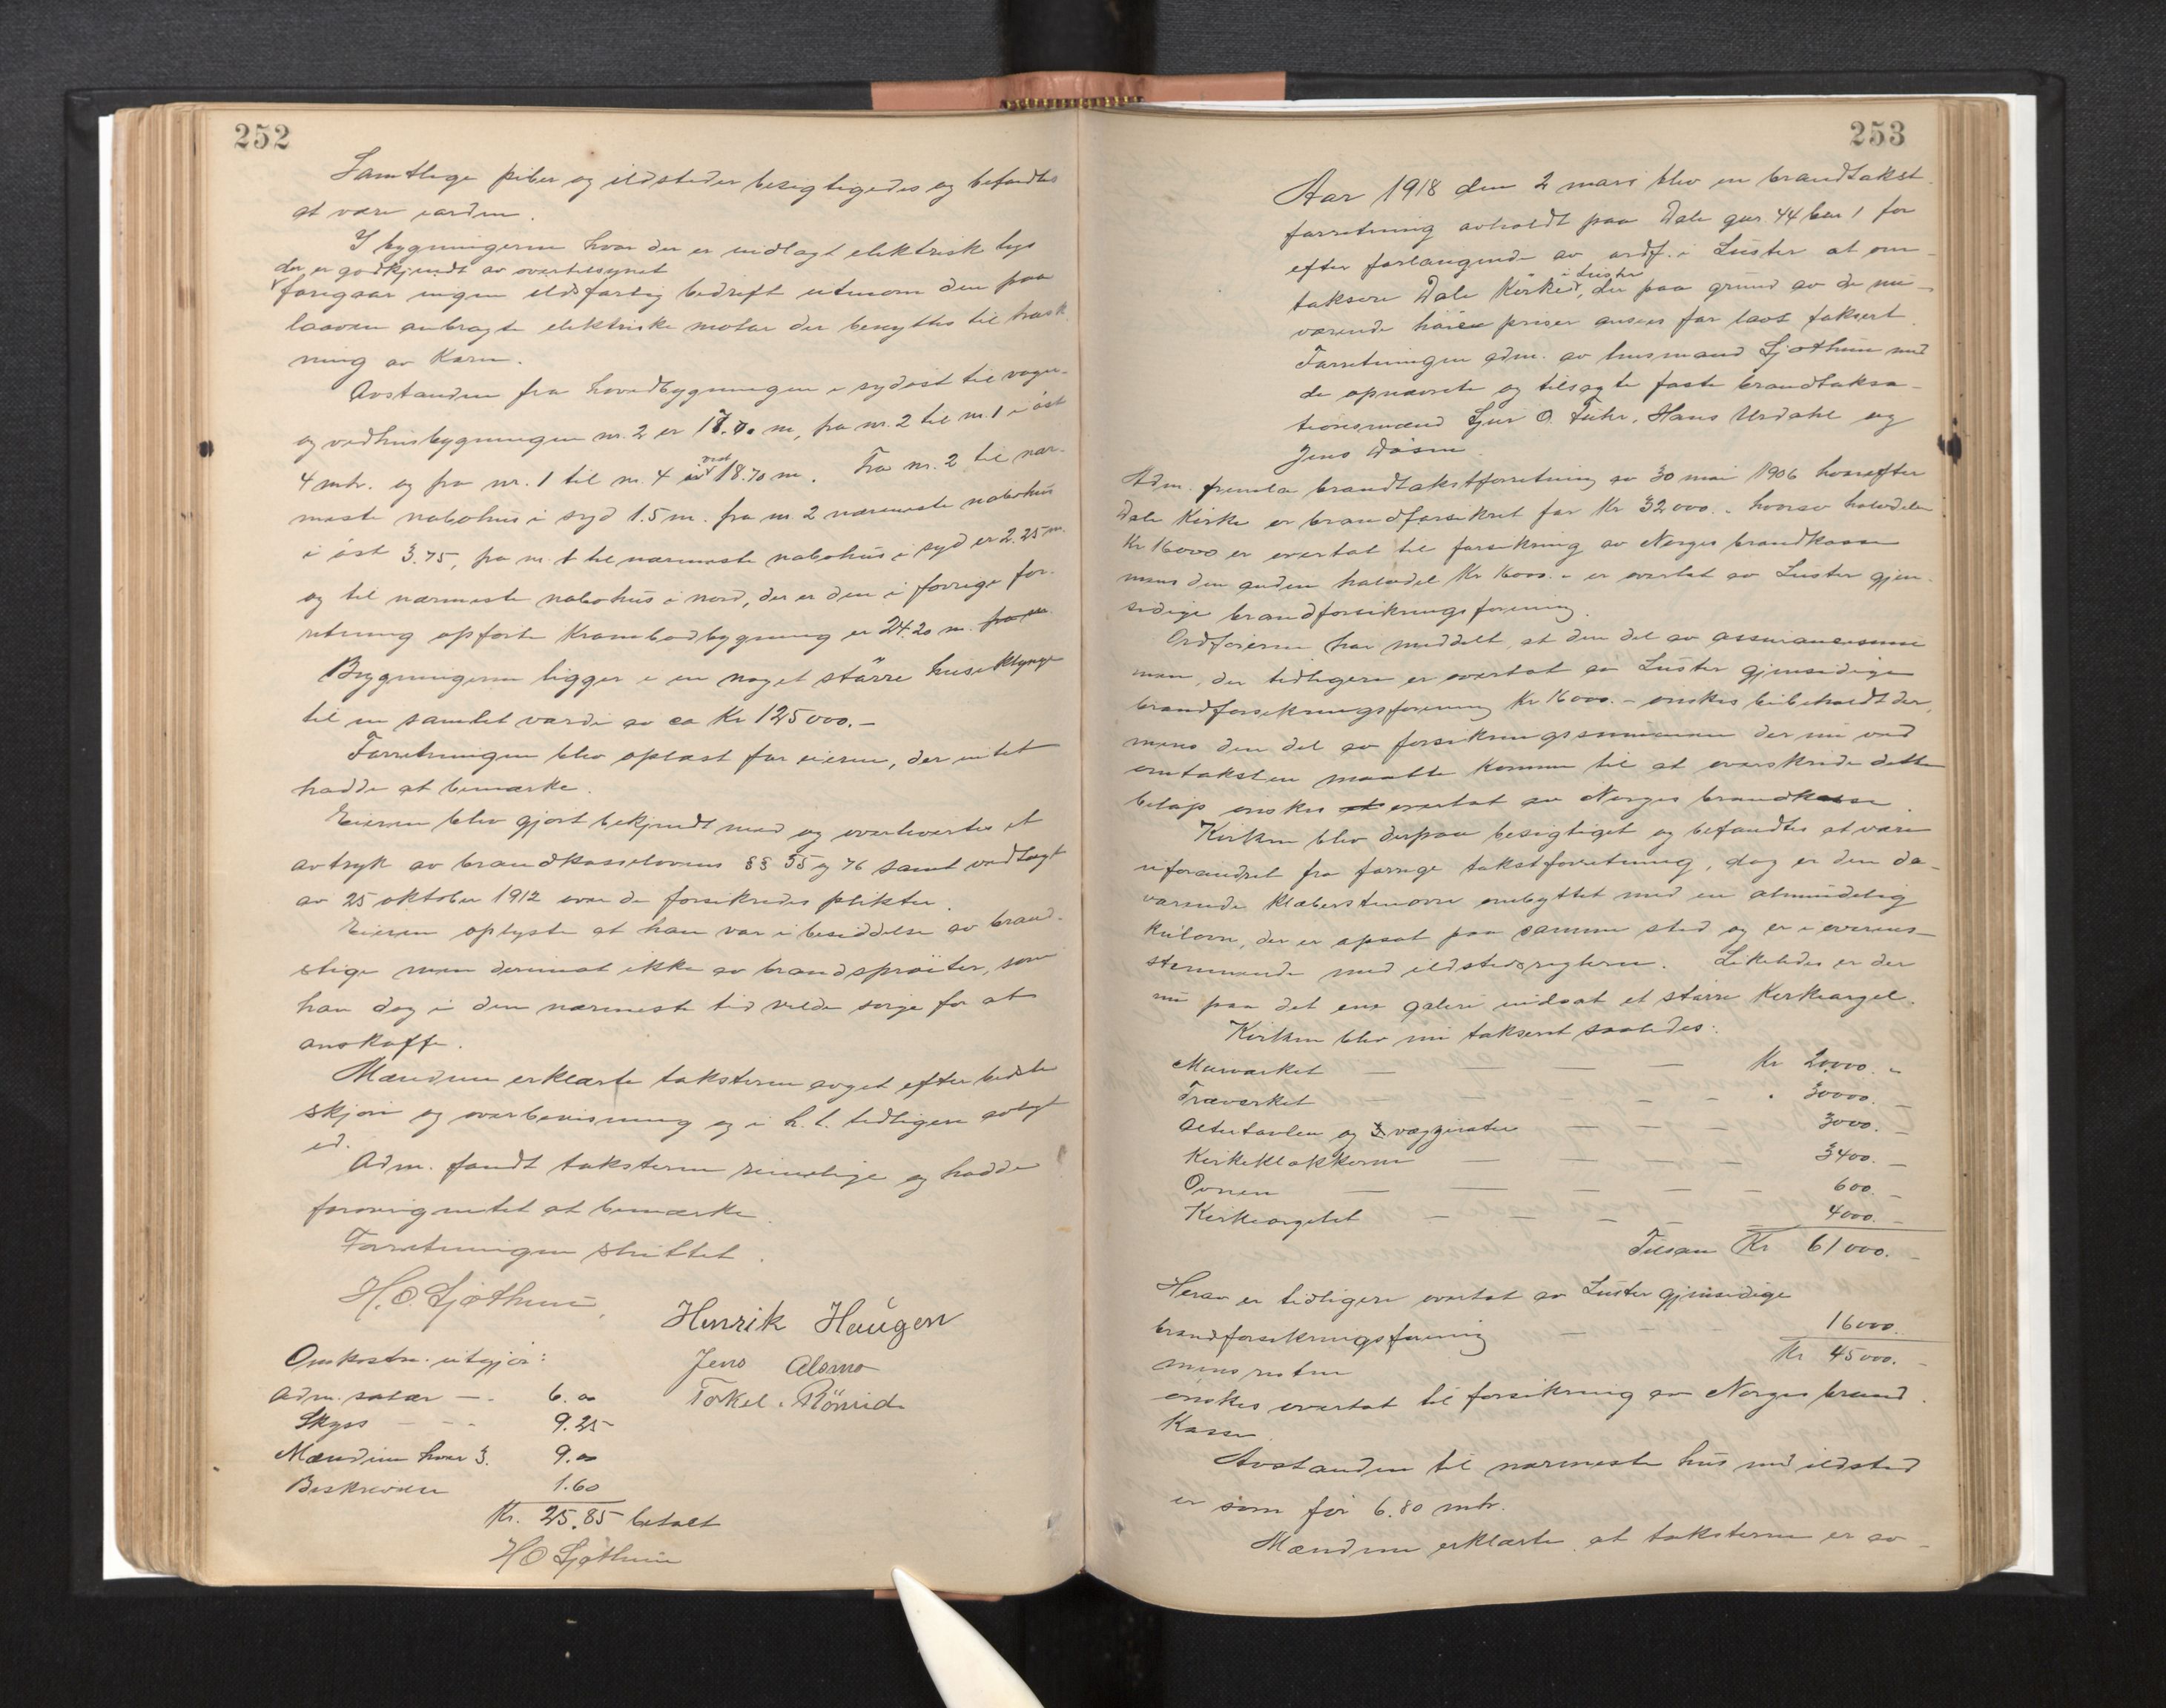 252
Samtlige piber og ildsteder besigtigedes og befandtes
at være iorden.
I bygningerne hvor der er indlagt elektrisk lys
der er godkjendt av overtilsynet
foregaar ingen ildsfarlig bedrift utenom den paa
laaven anbragte elektriske motor der benyttes til træsk
ning av Korn.
Avstanden fra hovedbygningen i sydøst til vogn-
og vedhusbygningen nr. 2 er m, fra nr. 2 til nr. 1 i øst
4 mtr. og fra nr. 1 til nr. 4 i vest 18.70 m. Fra nr. 2 til nær-
meste nabohus i syd 1.5 m. fra nr. 2 nærmeste nabohus
i øst 3.75, fra nr. 1 til nærmeste nabohus i syd er 2.25 m.
og til nærmeste nabohus i nord, der er den i forrige for-
retning opførte Krambodbygning er 24.20 m.
Bygningerne ligger i en noget større huseklynge
til en samlet værdi av ca Kr 125000.-
Forretningen blev oplæst for eieren, der intet
hadde at bemærke.
Eieren blev gjort bekjendt med og overlevertes et
avtryk av brandkasselovens §§ 55 og 76 samt vedtægt
av 25 oktober 1912 over de forsikredes plikter.
Eieren oplyste at han var i besiddelse av brand-
stige men derimot ikke av brandsprøiter, som
han dog i den nærmeste tid vilde sørge for at
anskaffe.
Mændene erklærte taksterne avget efter bedste
skjøn og overbevisning og i h. t. tidligere avlagt
ed.
Adm. fandt taksterne rimelige og hadde
forøvrig intet at bemærke.
Forretningen sluttet.
H.O. Sjøthun.
Henrik Haugen
Jens
Torkel
Omkostn. utgjør:
Adm. salær - - 6.00
Skyss - - - 9.25
Mændene hver 3. 9.00
Beskrivelsen 1.60
Kr. 25.85 betalt
H O Sjøthun
253
Aar 1918 den 2 mars blev en brandtakst
forretning avholdt paa Dale gnr. 44 bnr 1 for
efter forlangende av ordf. i Luster at om-
i Luster
taksere Dale Kirke, der paa grund av de nu-
værende høie priser ansees for lavt taksert.
Forretningen adm. av lensmand Sjøthun med
de opnævnte og tilsagte faste brandtaksa-
tionsmænd Sjur O. Fuhr, Hans Urdahl og
Jens Døsen.
Adm. fremla brandtakstforretning av 30 mai 1906 hvorefter
Dale Kirke er brandforsikret for Kr 32000.- hvorav halvdelen
Kr 16000 er overtat til forsikring av Norges brandkasse
mens den anden halvdel Kr 16000.- er overtat av Luster gjen-
sidige brandforsikringsforening.
Ordføreren har meddelt, at den del av assurancesum
men, der tidligere er overtat av Luster gjensidige
brandforsikringsforening Kr 16000.- ønskes beibeholdt der,
mens den del av forsikringssummen der nu ved
omtaksten maatte komme til at overskride dette
beløp ønskes overtat av Norges brandkasse.
Kirken blev derpaa besigtiget og befandtes at være
uforandret fra forrige takstforretning, dog er den da-
værende Klæberstenovn ombyttet med en almindelig
Kulovn, der er opsat paa samme sted og er i overens-
stemmende med ildstedsreglerne. Likeledes er der
nu paa det ene galeri indsat et større Kirkeorgel.
Kirken blev nu taksert saaledes:
Murværket — — — — Kr 20000.-
Træværket — — — — 30000.-
Altertavlen og 3 — — — 3000.-
Kirkeklokkerne — — — 3400.-
Ovnen — — — — — 600.-
Kirkeorgelet — — — — 4000.-
Tilsam Kr 61000.-
Herav er tidligere overtat av Luster gjensidige
brandforsikringsforening — — 16000.
mens resten Kr 45000.-
ønskes overtat til forsikring av Norges brand
Kasse.
Avstanden til nærmeste hus med ildsted
er som før 6.80 mtr.
Mændene erklærte at taksterne er av-